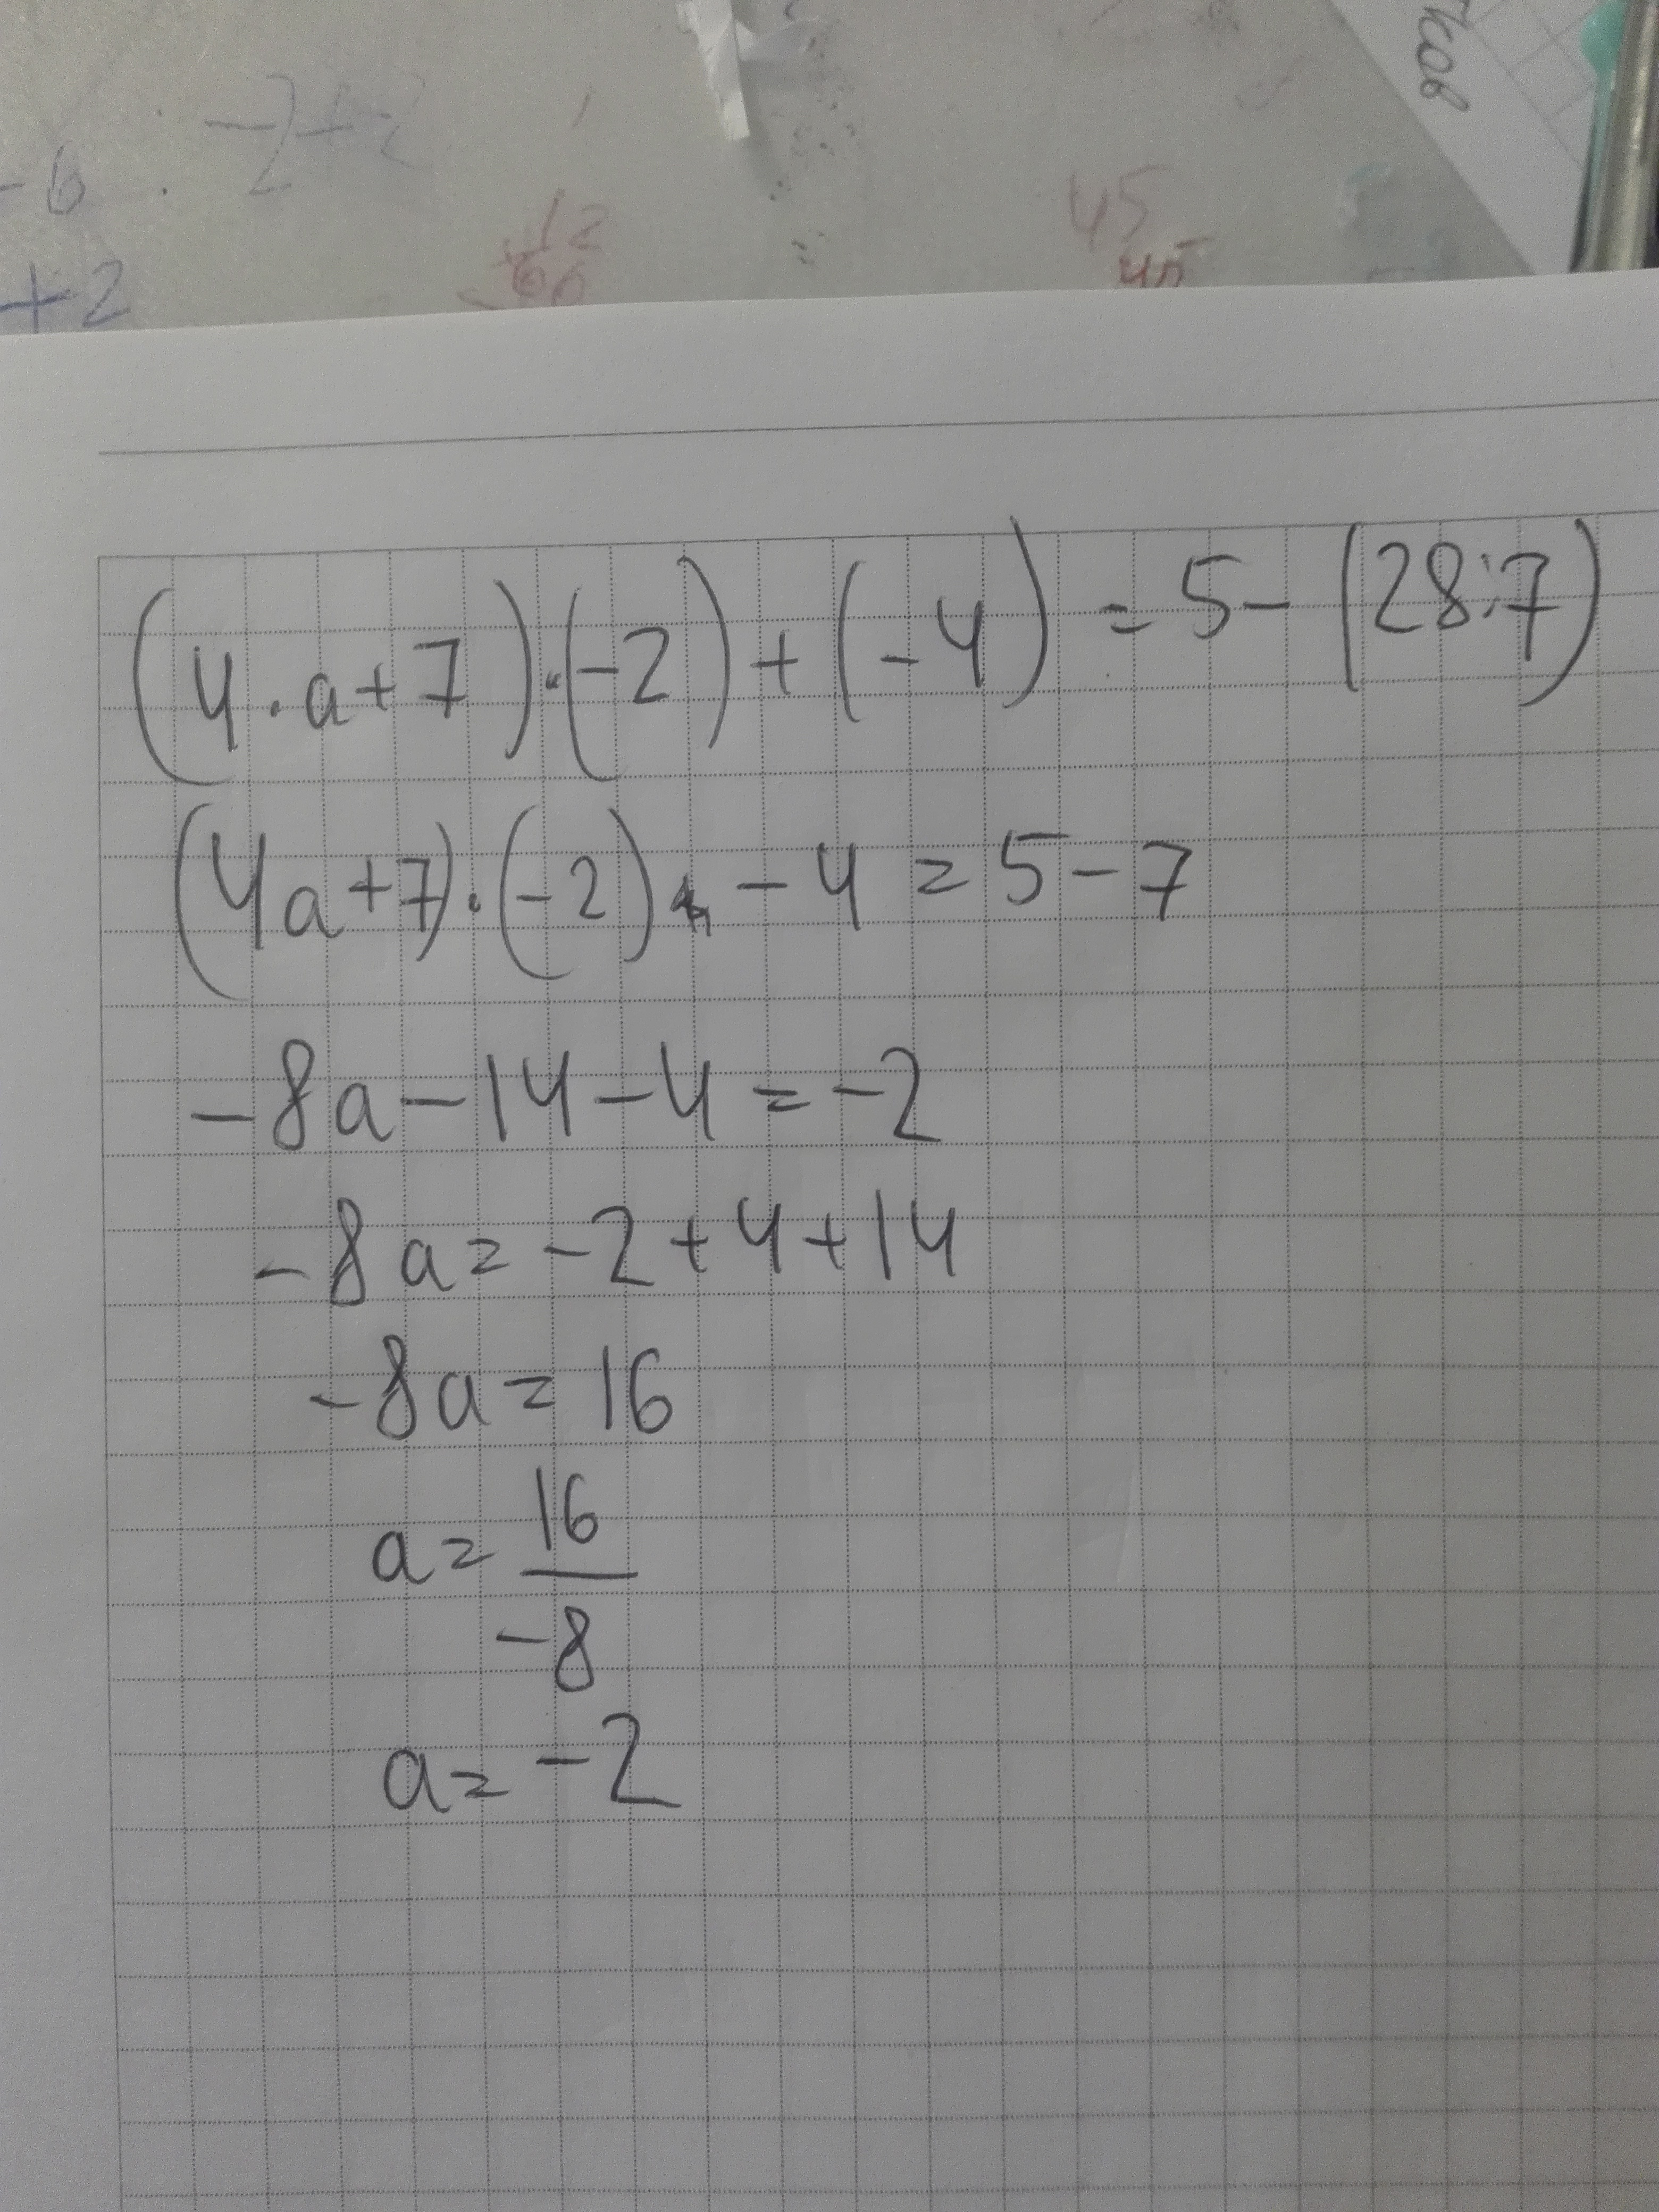 -2+2
-6
+2
12
60
45
45
ков
(4·a+7)·(-2)+(-4)=5-(28:7)
(4a+7)·(-2) -4=5-7
-8a-14-4=-2
-8a=-2+4+14
-8a=16
a=16
-8
a=-2